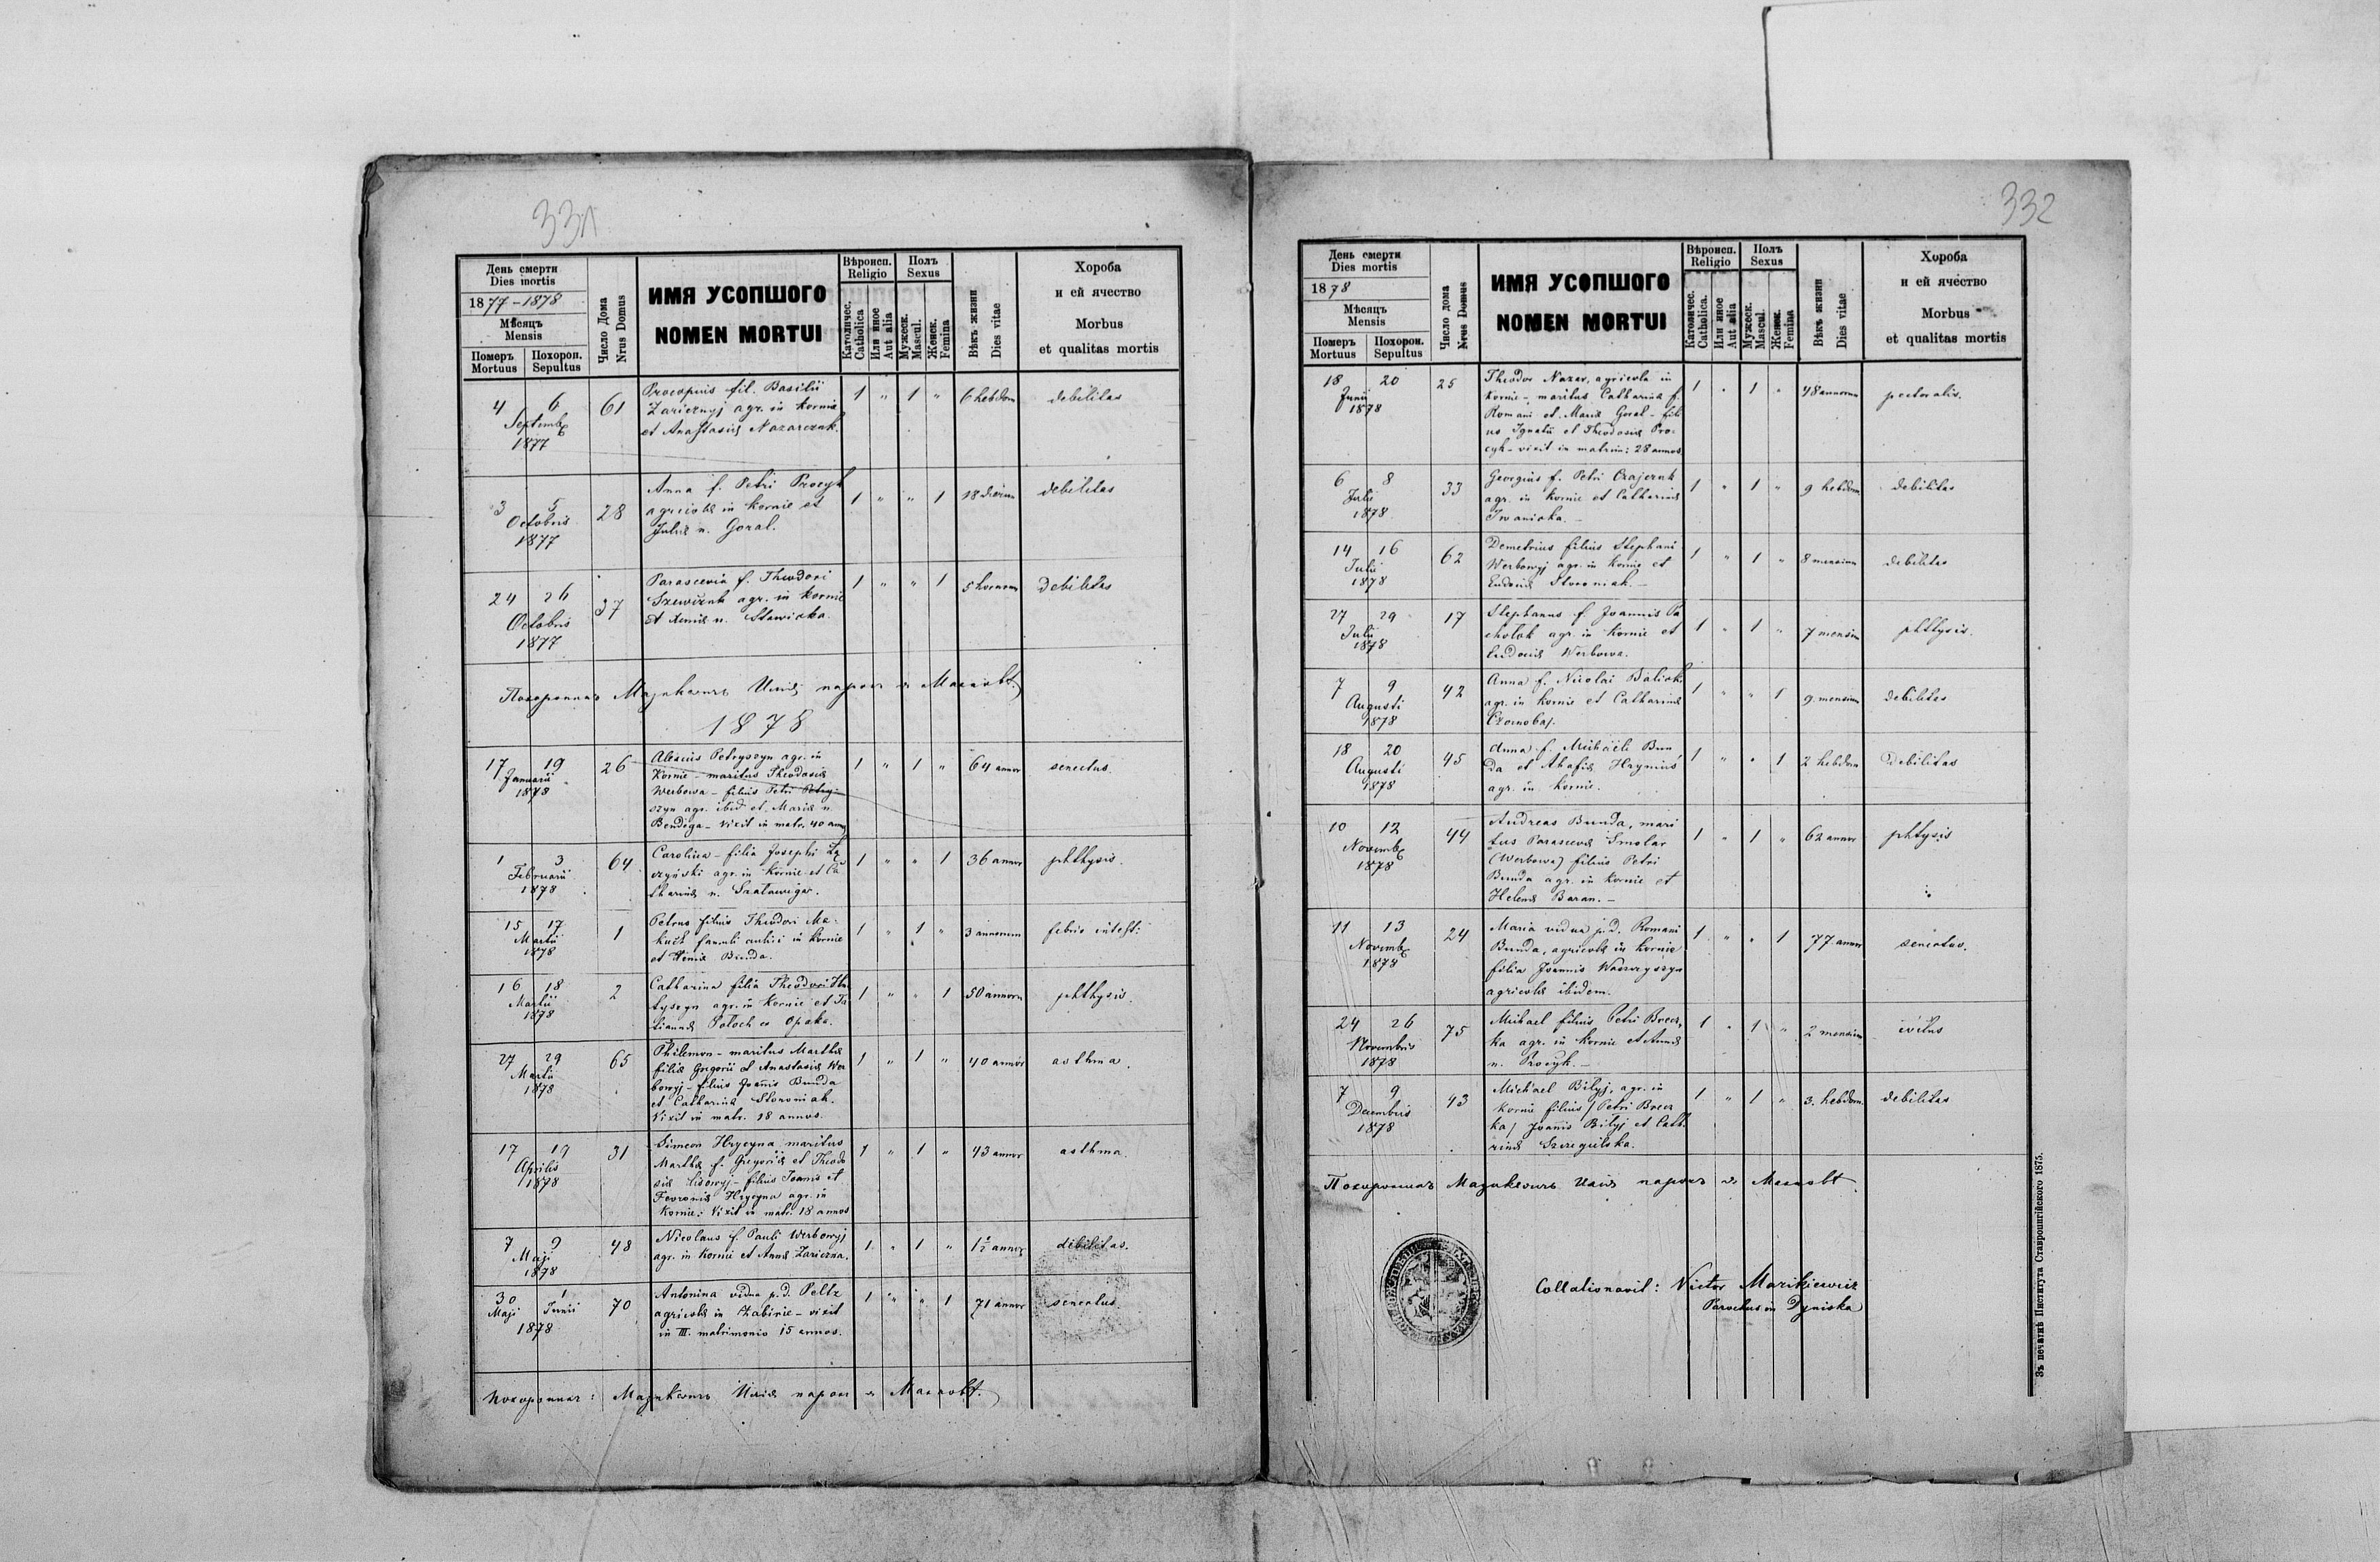 331
День смерти
Dies mortis
1877-1878
Мѣсяцъ
Mensis
Померъ Похорон.
Mortuus Sepultus
Число Дома
Nrus Domus
ИМЯ УСОПШОГО
NOMEN MORTUI
Вѣроисп.
Religio
Католичес.
Catholica
Или иное
Aut alia
Полъ
Sexus
Мужеск.
Mascul.
Женск.
Femina
Вѣкъ жизни
Dies vitae
Хороба
и ей ячество
Morbus
et qualitas mortis
4 6 61 Procopius fil. Basilii 1 " 1 " 6 hebdom debilitas
Septemb Zaricznyj agr. in Kornie
1877 et Anastasiæ Nazarczuk.
3 5 28 Anna f. Petri Procyk 1 " " 1 18 dierum debilitas
Octobris agricolæ in Kornie et
1877 Juliæ n. Goral.
24 26 37 Parascevia f. Theodori 1 " " 1 5 horarum debilitas
Octobris Szewczuk agr. in Kornie
1877 et Xeniæ n. Stawiska.
1878
17 19 26 Alexius Petryszyn agr. in 1 " 1 " 64 annor senectus
Januarii Kornie - maritus Theodosiæ
1878 Werbowa - filius Petri Petry-
szyn agr. ibid et Mariæ n.
Bendyga - vixit in matr. 40 annos
1 3 64 Carolina - filia Josephi 1 " " 1 36 annor phthysis.
Februarii agr. in Kornie et Ca
1878 tharinæ n.
15 17 1 Petrus filius Theodori Ma- 1 " 1 " 3 annorum febris intest:
Martii famuli aulici in Kornie
1878 et Xeniæ Bunda.
16 18 2 Catharina filia Theodori 1 " " 1 50 annorum phthysis.
Martii tyszyn agr. in Kornie et Ta
1878 tiannæ Potoch ex Opaka.
27 29 65 Philemon - maritus Marthæ 1 " 1 " 40 annor asthma.
Martii filiæ Gregorii et Anastasiæ Wer
1878 bowyj - filius Joannis Bunda
et Catharinæ Storoniak.
Vixit in matr. 18 annos.
17 19 31 Simeon Hrycyna maritus 1 " 1 " 43 annor asthma.
Aprilis Marthæ f. Gregorii et Theodo
1878 siæ Lisowyj - filius Joannis et
Fevroniæ Hrycyna agr. in
Kornie: Vixit in matr: 18 annos
7 9 48 Nicolaus f. Pauli Werbowyj 1 " 1 " 1½ annor debilitas.
Maji agr. in Kornie et Annæ Zariczna.
1878
30 1 70 Antonina vidua p.d. Peltz 1 " " 1 71 annor senectus
Maji Junii agricolæ in Zabirie - vixit
1878 in III. matrimonio 15 annos.
332
День смерти
Dies mortis
1878
Мѣсяцъ
Mensis
Померъ Похорон.
Mortuus Sepultus
Число дома
Nrus Domus
ИМЯ УСОПШОГО
NOMEN MORTUI
Вѣроисп.
Religio
Католичес.
Catholica.
Или иное
Aut alia
Полъ
Sexus
Мужеск.
Mascul.
Женск.
Femina
Вѣкъ жизни
Dies vitae
Хороба
и ей ячество
Morbus
et qualitas mortis
18 20 25 Theodor Nazar, agricola in 1 " 1 " 48 annorum pectoralis.
Junii Kornie - maritus Catharinæ f.
1878 Romani et Mariæ Goral - fili
us Ignatii et Theodosiæ Pro-
cyk - vixit in matrim: 28 annos.
6 8 33 Georgius f. Petri Czajczuk 1 " 1 " 9 hebdom debilitas
Julii agr. in Kornie et Catharinæ
1878 Iwaniska.
14 16 62 Demetrius filius Stephani 1 " 1 " 8 mensium debilitas
Julii Werbowyj agr. in Kornie et
1878 Eudociæ Storoniak.
27 29 17 Stephanus f. Joannis Pa 1 " 1 " 7 mensium phthysis.
Julii chołok agr. in Kornie et
1878 Eudociæ Werbowa.
7 9 42 Anna f. Nicolai 1 " " 1 9 mensium debilitas
Augusti agr. in Kornie et Catharinæ
1878 Czornobaj.
18 20 45 Anna f. Michaeli Bun 1 " " 1 2 hebdom debilitas
Augusti da et Ahafiæ Hryniuś
1878 agr. in Kornie.
10 12 44 Andreas Bunda, mari 1 " 1 " 62 annor phtysis
Novemb tus Parasceviæ Smolar
1878 (Werbowa) filius Petri
Bunda agr. in Kornie et
Helenæ Baran. -
11 13 24 Maria vidua p.d. Romani 1 " " 1 77 annor senectus.
Novemb Bunda, agricolæ in Kornie
1878 filia Joannis Wawryszyn
agricolæ ibidem.
24 26 75 Michael filius Petri Brecz- 1 " 1 " 2 mensium
Novembris ka agr. in Kornie et Annæ
1878 n. Procyk. -
7 9 43 Michael Bilyj, agr. in 1 " 1 " 3. hebdom. debilitas
Decembris Kornie filius /Petri Brecz
1878 ka/ Joannis Bilyj et Catha
rinæ
Collationavit: Victor Mazikiewicz
Parochus in Dyniska
Зъ печатнѣ Института Ставропигійского 1875.